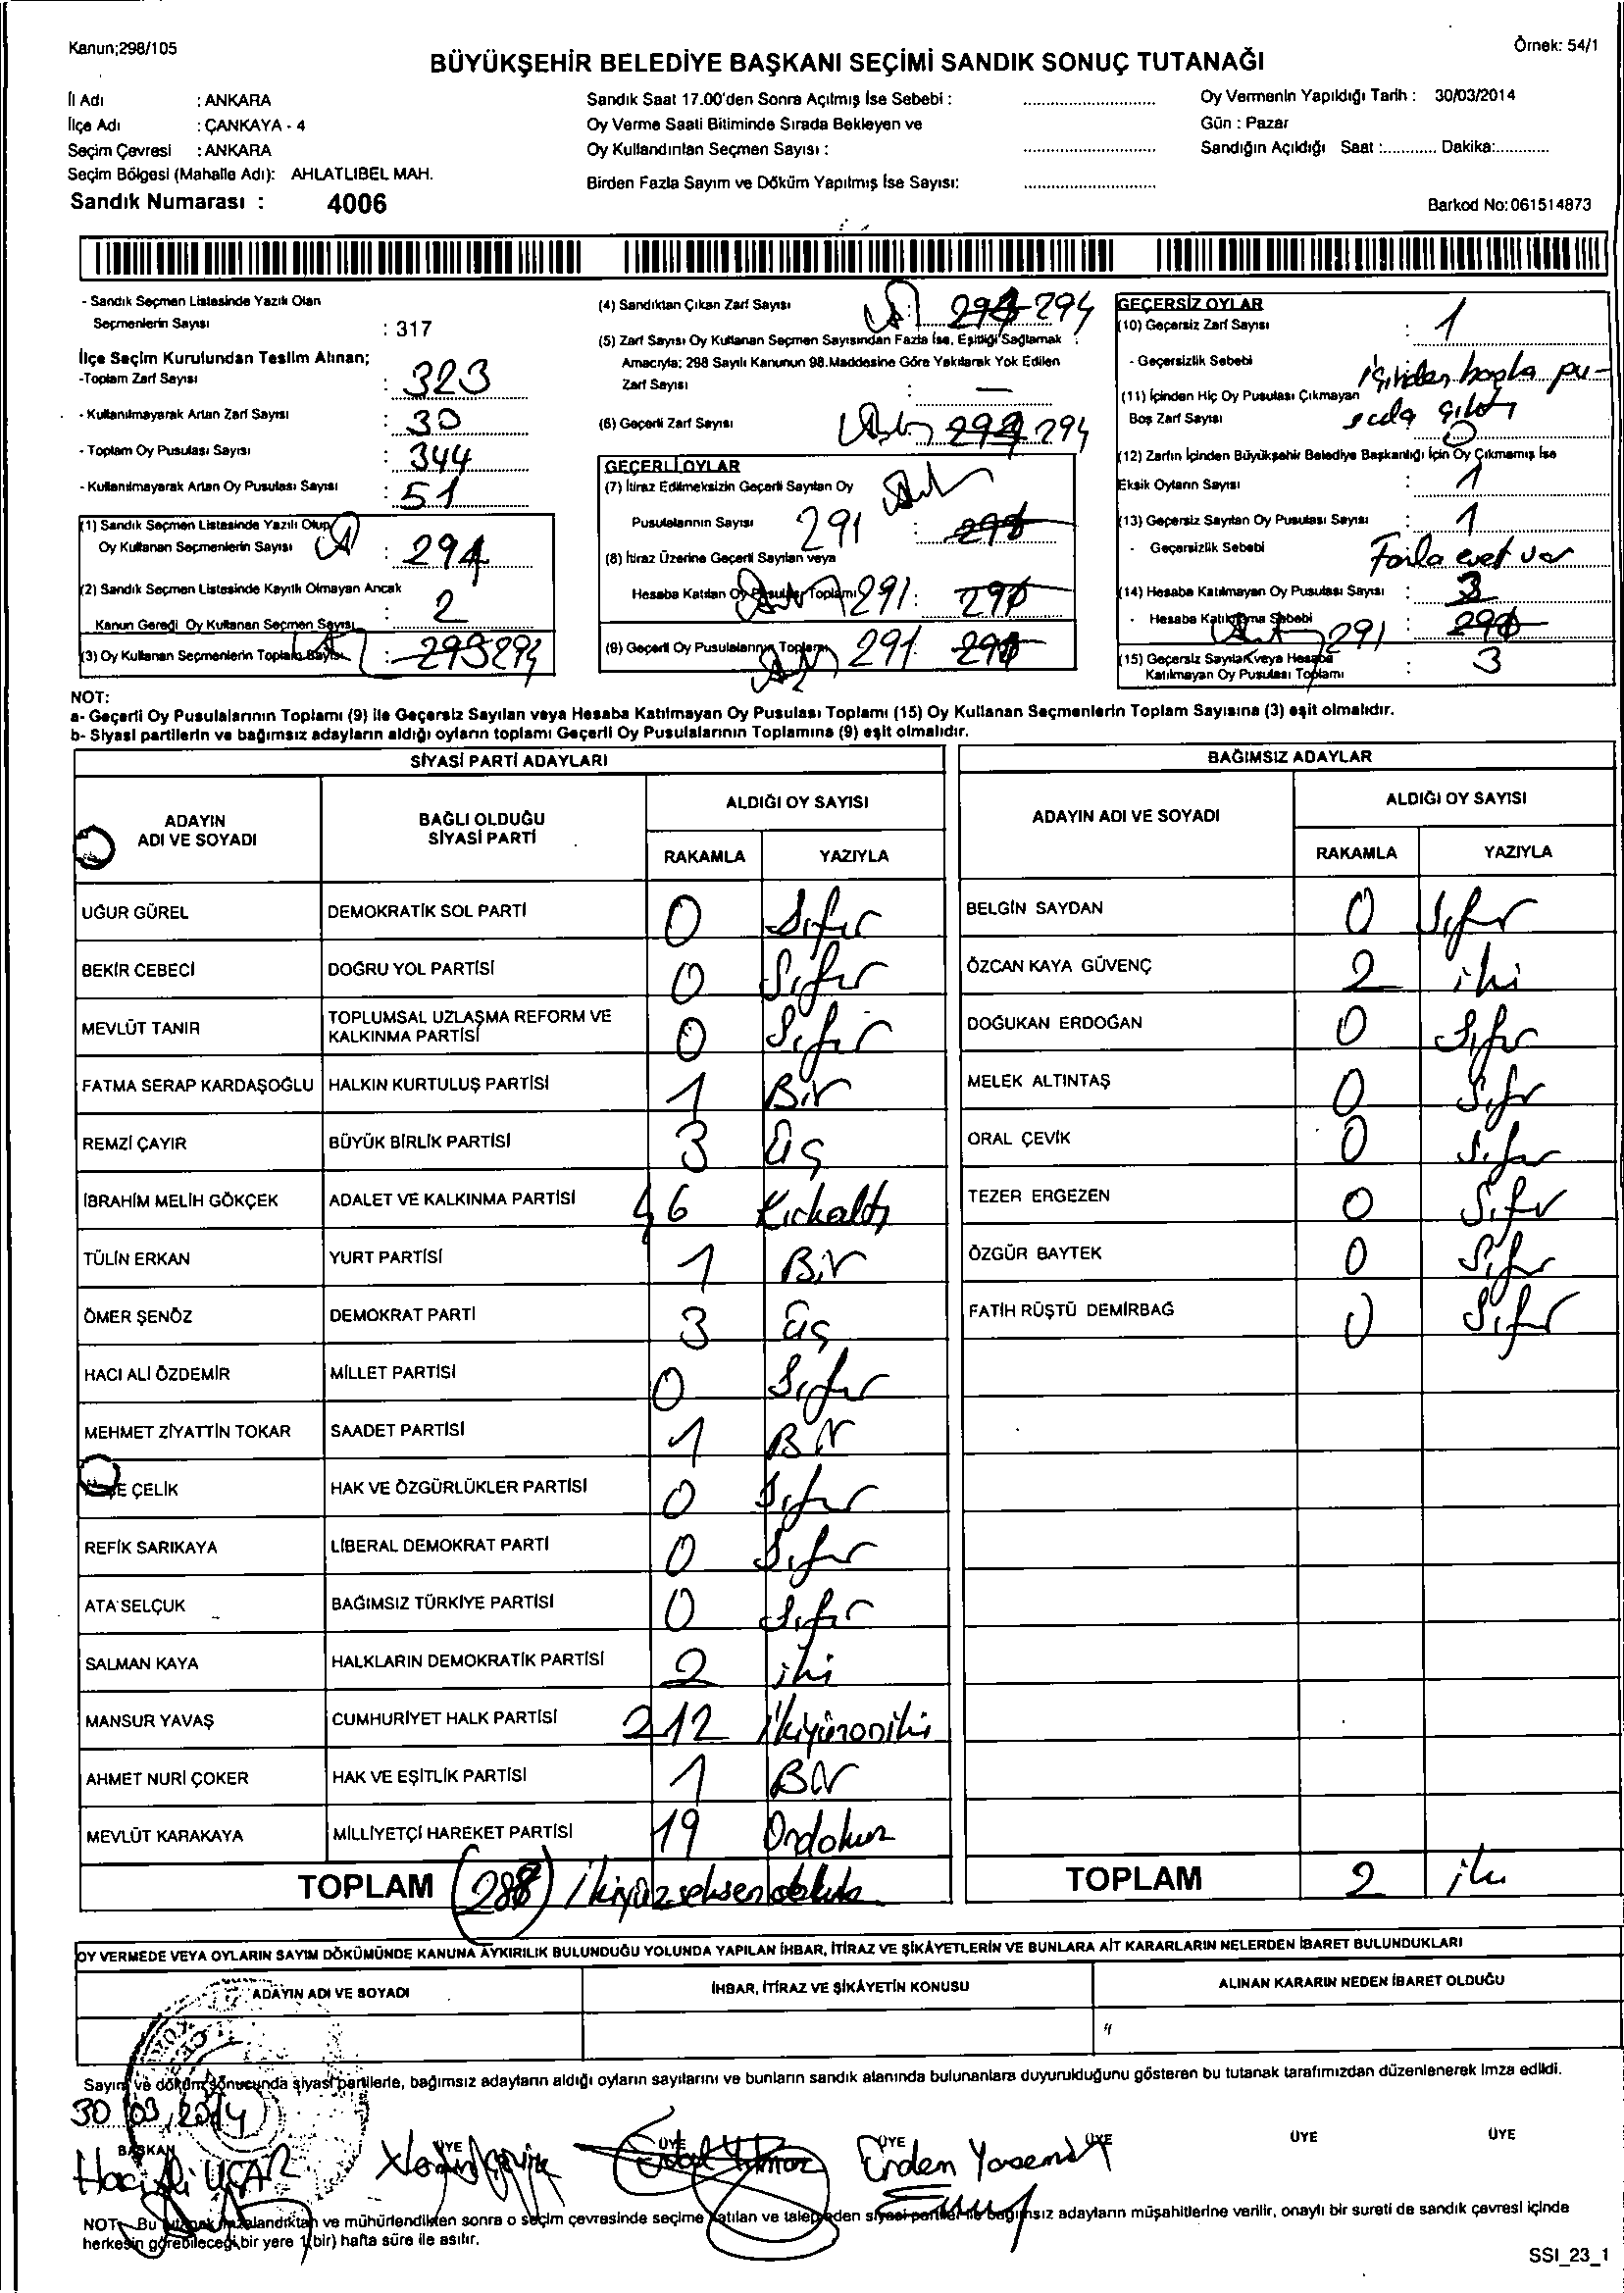 Kanun;298/105
Örnek: 54/1
BÜYÜKŞEHİR BELEDİYE BAŞKANI SEÇİMİ SANDIK SONUÇ TUTANAĞI
İl Adı : ANKARA
İlçe Adı : ÇANKAYA - 4
Seçim Çevresi : ANKARA
Seçim Bölgesi (Mahalle Adı): AHLATLIBEL MAH.
Sandık Numarası : 4006
Sandık Saat 17.00'den Sonra Açılmış İse Sebebi :
Oy Verme Saati Bitiminde Sırada Bekleyen ve
Oy Kullandırılan Seçmen Sayısı :
Birden Fazla Sayım ve Döküm Yapılmış İse Sayısı:
Oy Vermenin Yapıldığı Tarih : 30/03/2014
Gün : Pazar
Sandığın Açıldığı Saat :............ Dakika:...........
Barkod No:061514873
- Sandık Seçmen Listesinde Yazılı Olan
Seçmenlerin Sayısı : 317
İlçe Seçim Kurulundan Teslim Alınan;
-Toplam Zarf Sayısı : 323
- Kullanılmayarak Artan Zarf Sayısı : 30
- Toplam Oy Pusulası Sayısı : 344
- Kullanılmayarak Artan Oy Pusulası Sayısı : 51
(1) Sandık Seçmen Listesinde Yazılı Olup
Oy Kullanan Seçmenlerin Sayısı : 294
(2) Sandık Seçmen Listesinde Kayıtlı Olmayan Ancak
Kanun Gereği Oy Kullanan Seçmen Sayısı : 2
(3) Oy Kullanan Seçmenlerin Toplam Sayısı : 295 294
(4) Sandıktan Çıkan Zarf Sayısı 294
(5) Zarf Sayısı Oy Kullanan Seçmen Sayısından Fazla İse, Eşitliği Sağlamak
Amacıyla; 298 Sayılı Kanunun 98.Maddesine Göre Yakılarak Yok Edilen
Zarf Sayısı : —
(6) Geçerli Zarf Sayısı 294
GEÇERLİ OYLAR
(7) İtiraz Edilmeksizin Geçerli Sayılan Oy
Pusulalarının Sayısı 291
(8) İtiraz Üzerine Geçerli Sayılan veya
Hesaba Katılan Oy Pusulası Toplamı 291
(9) Geçerli Oy Pusulalarının Toplamı 291
GEÇERSİZ OYLAR
(10) Geçersiz Zarf Sayısı : 1
- Geçersizlik Sebebi içinden başka pu-
sula çıktı
(11) İçinden Hiç Oy Pusulası Çıkmayan
Boş Zarf Sayısı 0
(12) Zarfın İçinden Büyükşehir Belediye Başkanlığı İçin Oy Çıkmamış İse
Eksik Oyların Sayısı : 1
(13) Geçersiz Sayılan Oy Pusulası Sayısı : 1
- Geçersizlik Sebebi Fazla evet var
(14) Hesaba Katılmayan Oy Pusulası Sayısı : 3
- Hesaba Katılmama Sebebi 291
(15) Geçersiz Sayılan veya Hesaba
Katılmayan Oy Pusulası Toplamı : 3
NOT:
a- Geçerli Oy Pusulalarının Toplamı (9) ile Geçersiz Sayılan veya Hesaba Katılmayan Oy Pusulası Toplamı (15) Oy Kullanan Seçmenlerin Toplam Sayısına (3) eşit olmalıdır.
b- Siyasi partilerin ve bağımsız adayların aldığı oyların toplamı Geçerli Oy Pusulalarının Toplamına (9) eşit olmalıdır.
SİYASİ PARTİ ADAYLARI
ADAYIN ADI VE SOYADI BAĞLI OLDUĞU SİYASİ PARTİ ALDIĞI OY SAYISI
RAKAMLA YAZIYLA
UĞUR GÜREL DEMOKRATİK SOL PARTİ 0 Sıfır
BEKİR CEBECİ DOĞRU YOL PARTİSİ 0 Sıfır
MEVLÜT TANIR TOPLUMSAL UZLAŞMA REFORM VE KALKINMA PARTİSİ 0 Sıfır
FATMA SERAP KARDAŞOĞLU HALKIN KURTULUŞ PARTİSİ 1 Bir
REMZİ ÇAYIR BÜYÜK BİRLİK PARTİSİ 3 Üç
İBRAHİM MELİH GÖKÇEK ADALET VE KALKINMA PARTİSİ 46 Kırkaltı
TÜLİN ERKAN YURT PARTİSİ 1 Bir
ÖMER ŞENÖZ DEMOKRAT PARTİ 3 Üç
HACI ALİ ÖZDEMİR MİLLET PARTİSİ 0 Sıfır
MEHMET ZİYATTİN TOKAR SAADET PARTİSİ 1 Bir
ÇELİK HAK VE ÖZGÜRLÜKLER PARTİSİ 0 Sıfır
REFİK SARIKAYA LİBERAL DEMOKRAT PARTİ 0 Sıfır
ATA SELÇUK BAĞIMSIZ TÜRKİYE PARTİSİ 0 Sıfır
SALMAN KAYA HALKLARIN DEMOKRATİK PARTİSİ 2 iki
MANSUR YAVAŞ CUMHURİYET HALK PARTİSİ 212 ikiyüzoniki
AHMET NURİ ÇOKER HAK VE EŞİTLİK PARTİSİ 1 Bir
MEVLÜT KARAKAYA MİLLİYETÇİ HAREKET PARTİSİ 19 Ondokuz
TOPLAM (288)
BAĞIMSIZ ADAYLAR
ADAYIN ADI VE SOYADI ALDIĞI OY SAYISI
RAKAMLA YAZIYLA
BELGİN SAYDAN 0 Sıfır
ÖZCAN KAYA GÜVENÇ 2 iki
DOĞUKAN ERDOĞAN 0 Sıfır
MELEK ALTINTAŞ 0 Sıfır
ORAL ÇEVİK 0 Sıfır
TEZER ERGEZEN 0 Sıfır
ÖZGÜR BAYTEK 0 Sıfır
FATİH RÜŞTÜ DEMİRBAĞ 0 Sıfır
TOPLAM 2 iki
OY VERMEDE VEYA OYLARIN SAYIM DÖKÜMÜNDE KANUNA AYKIRILIK BULUNDUĞU YOLUNDA YAPILAN İHBAR, İTİRAZ VE ŞİKÂYETLERİN VE BUNLARA AİT KARARLARIN NELERDEN İBARET BULUNDUKLARI
ADAYIN ADI VE SOYADI İHBAR, İTİRAZ VE ŞİKÂYETİN KONUSU ALINAN KARARIN NEDEN İBARET OLDUĞU
Sayım ve döküm sonucunda siyasi partilerle, bağımsız adayların aldığı oyların sayılarını ve bunların sandık alanında bulunanlara duyurulduğunu gösteren bu tutanak tarafımızdan düzenlenerek imza edildi.
30/03/2014
BAŞKAN ÜYE ÜYE ÜYE ÜYE ÜYE ÜYE
Hacı Ali UÇAR Erden
NOT- Bu tutanak imzalandıktan ve mühürlendikten sonra o seçim çevresinde seçime katılan ve talep eden siyasi partiler ile bağımsız adayların müşahitlerine verilir, onaylı bir sureti de sandık çevresi içinde
herkesin görebileceği bir yere 1 (bir) hafta süre ile asılır.
SSI_23_1